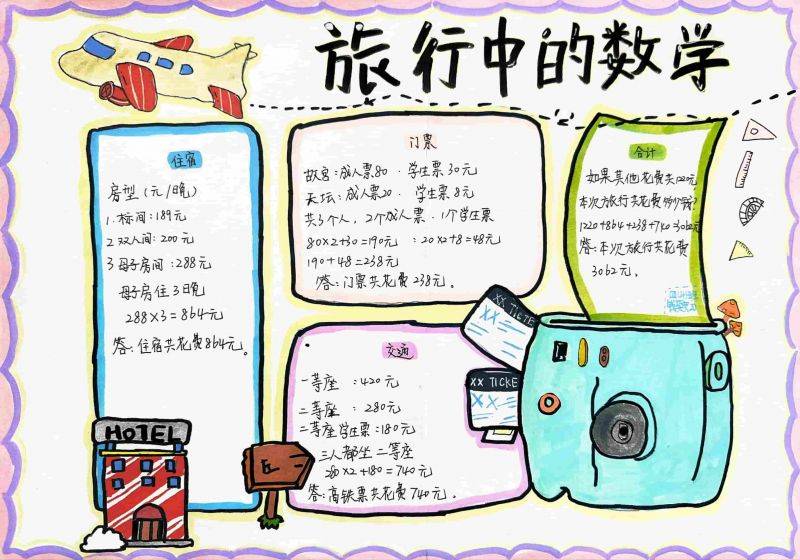 旅行中的数学
住宿
房型(元/晚)
1.标间:189元
2.双人间:200元
3.母子房间:288元
母子房住3晚
288×3=864元
答:住宿共花费864元。
HOTEL
门票
故宫:成人票80.学生票30元
天坛:成人票20.学生票8元
共3个人,2个成人票.1个学生票
80×2+30=190元 :20×2+8=48元
190+48=238元
答:门票共花费238元。
交通
一等座:420元
二等座:280元
二等座学生票:180元
三人都坐二等座
280×2+180=740元
答:高铁票共花费740元。
XX TICKE
XX
XX TICKE
XX
合计
如果其他花费共1220元,
本次旅行共花费多少钱?
1220+864+238+740=3062元
答:本次旅行共花费
3062元。